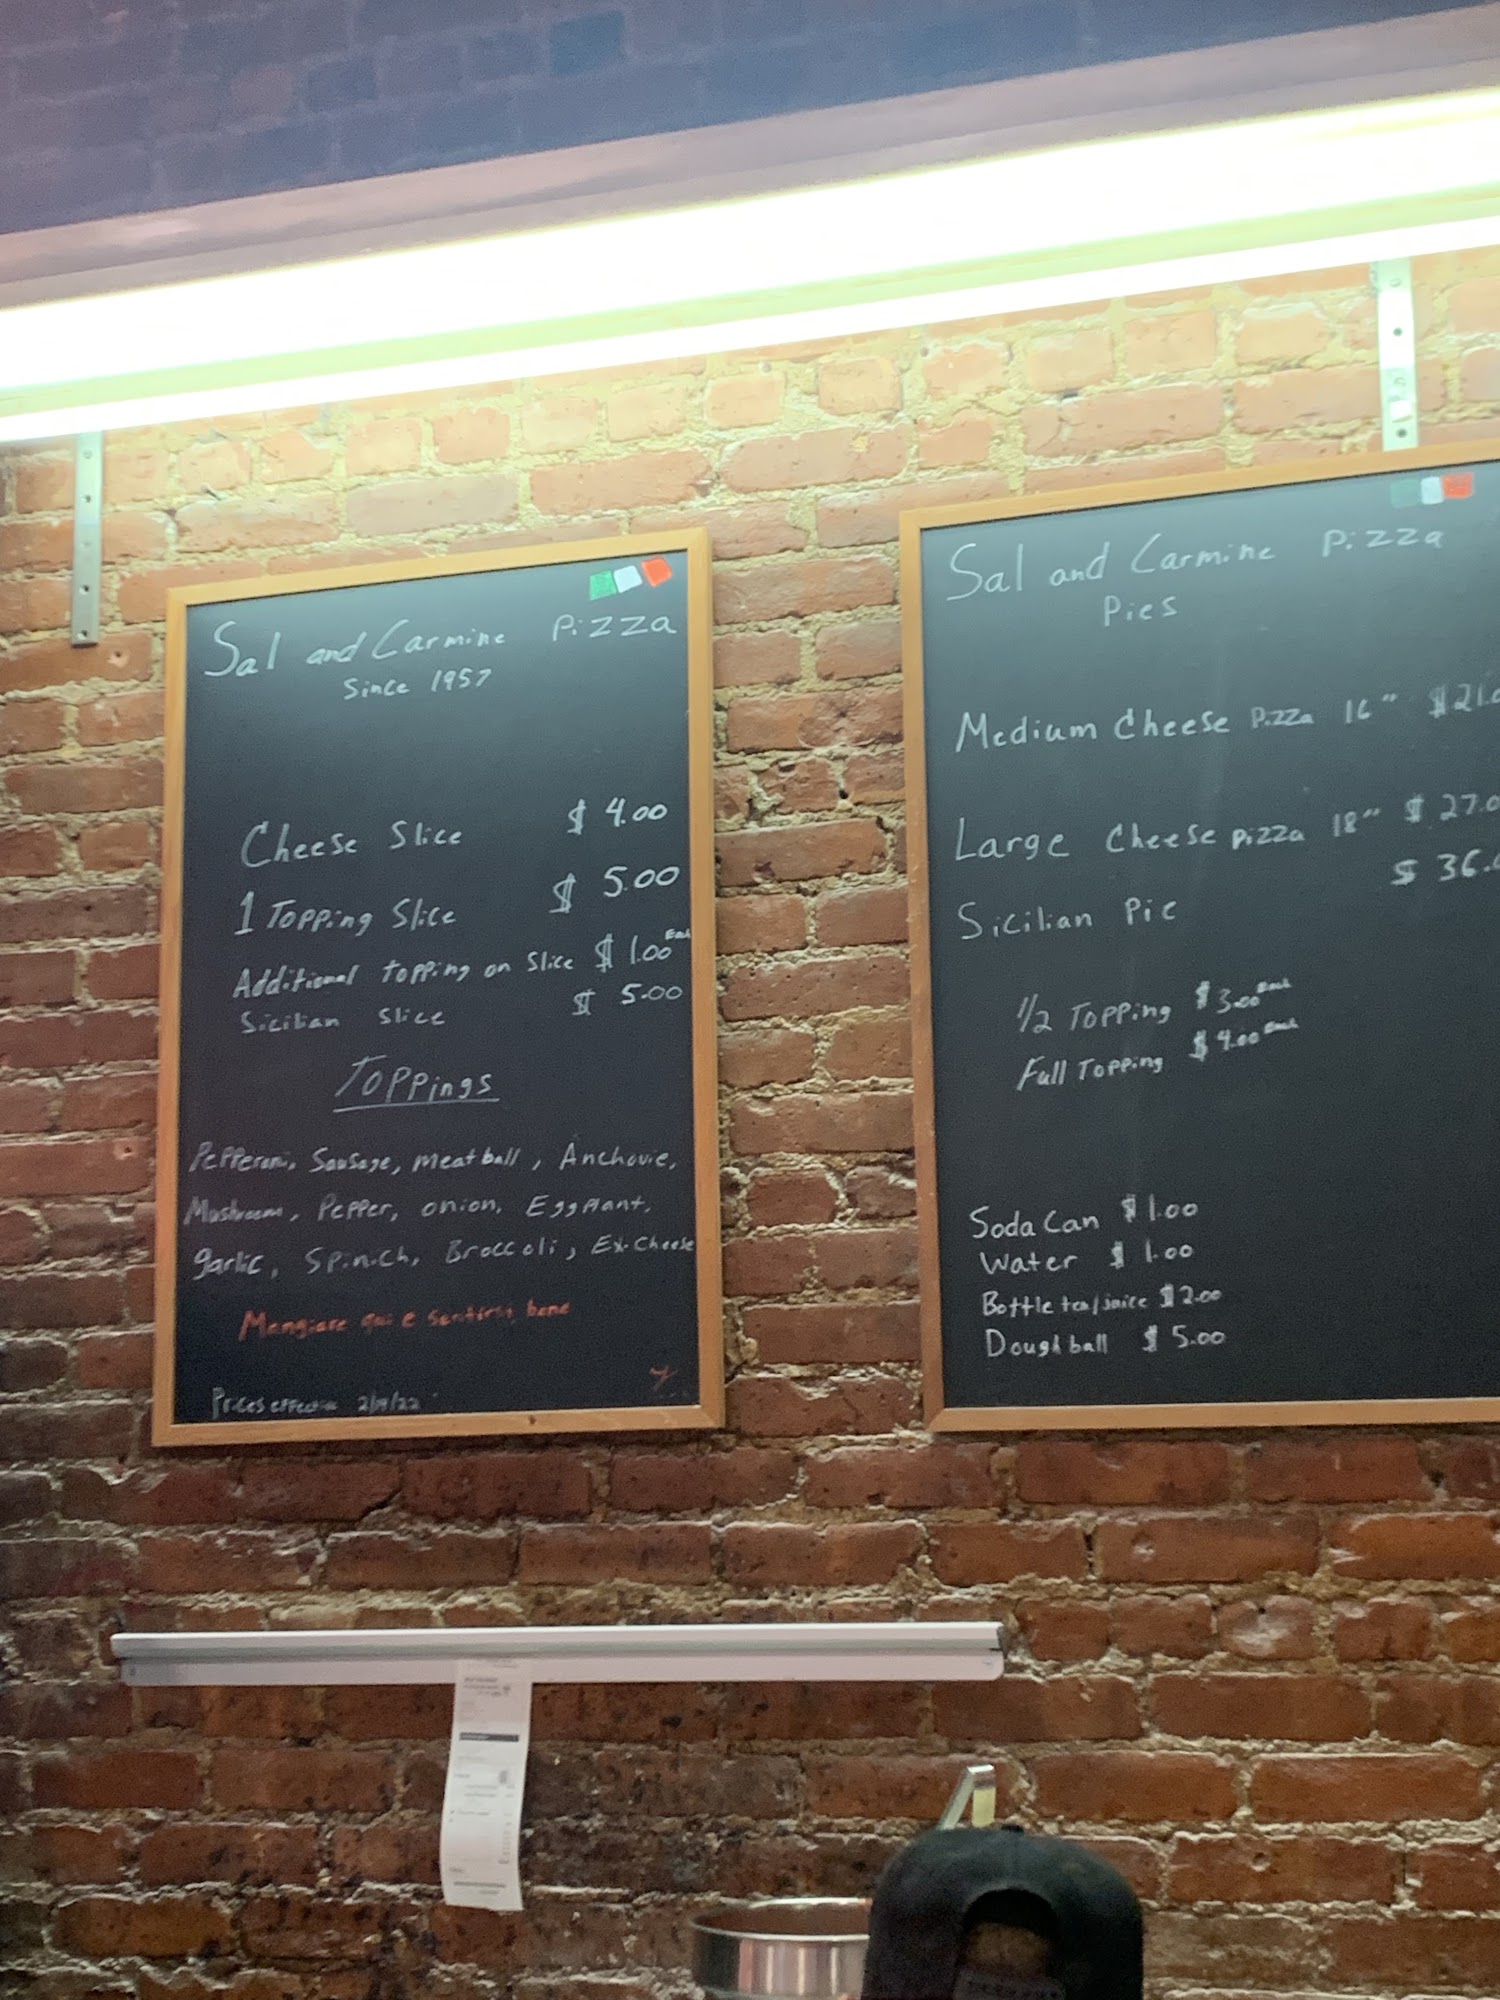 Sal and Carmine Pizza
Since 1957
Cheese Slice $ 4.00
1 Topping Slice $ 5.00
Additional topping on Slice $ 1.00 Each
Sicilian Slice $ 5.00
Toppings
Pepperoni, Sausage, meatball, Anchovie,
Mushroom, Pepper, onion, Eggplant,
garlic, Spinich, Broccoli, Ex-Cheese
Mangiare qui e sentirsi bene
Prices effective
Sal and Carmine Pizza
Pies
Medium Cheese Pizza 16" $21.0
Large Cheese Pizza 18" $ 27.0
Sicilian Pie $ 36.0
1/2 Topping $3.00 Each
Full Topping $4.00 Each
Soda Can $1.00
Water $ 1.00
Bottle tea/juice $2.00
Dough ball $ 5.00